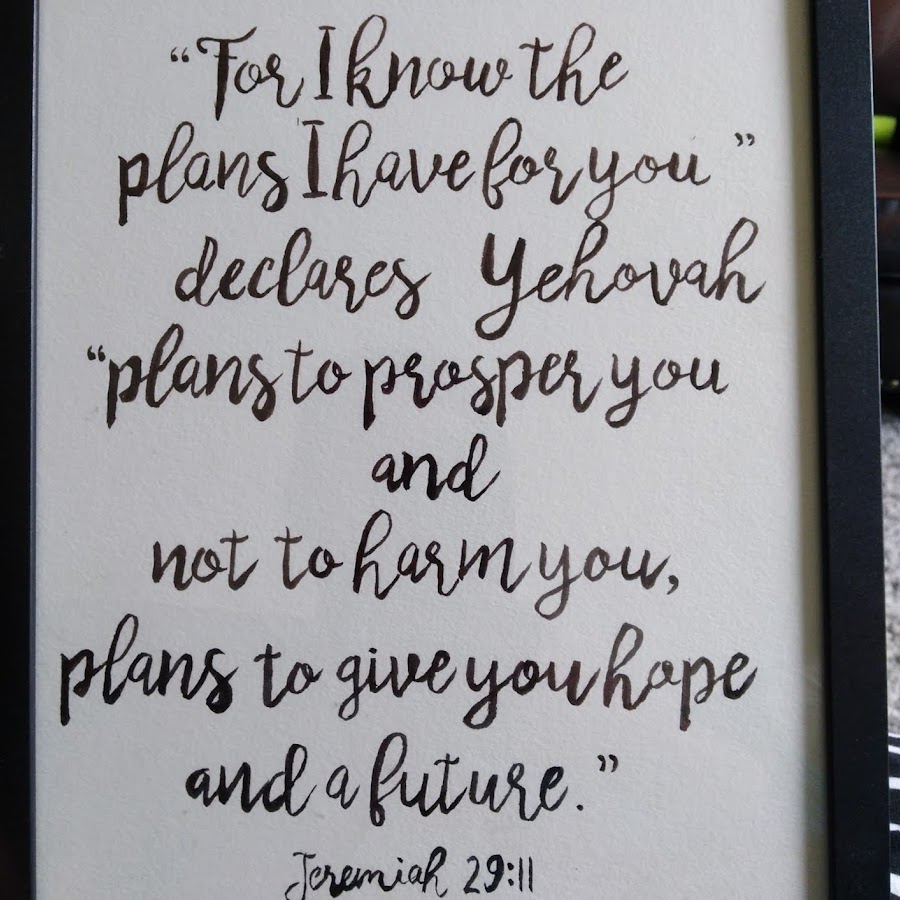 “For I know the
plans I have for you ”
declares Yehovah
“plans to prosper you
and
not to harm you,
plans to give you hope
and a future.”
Jeremiah 29:11